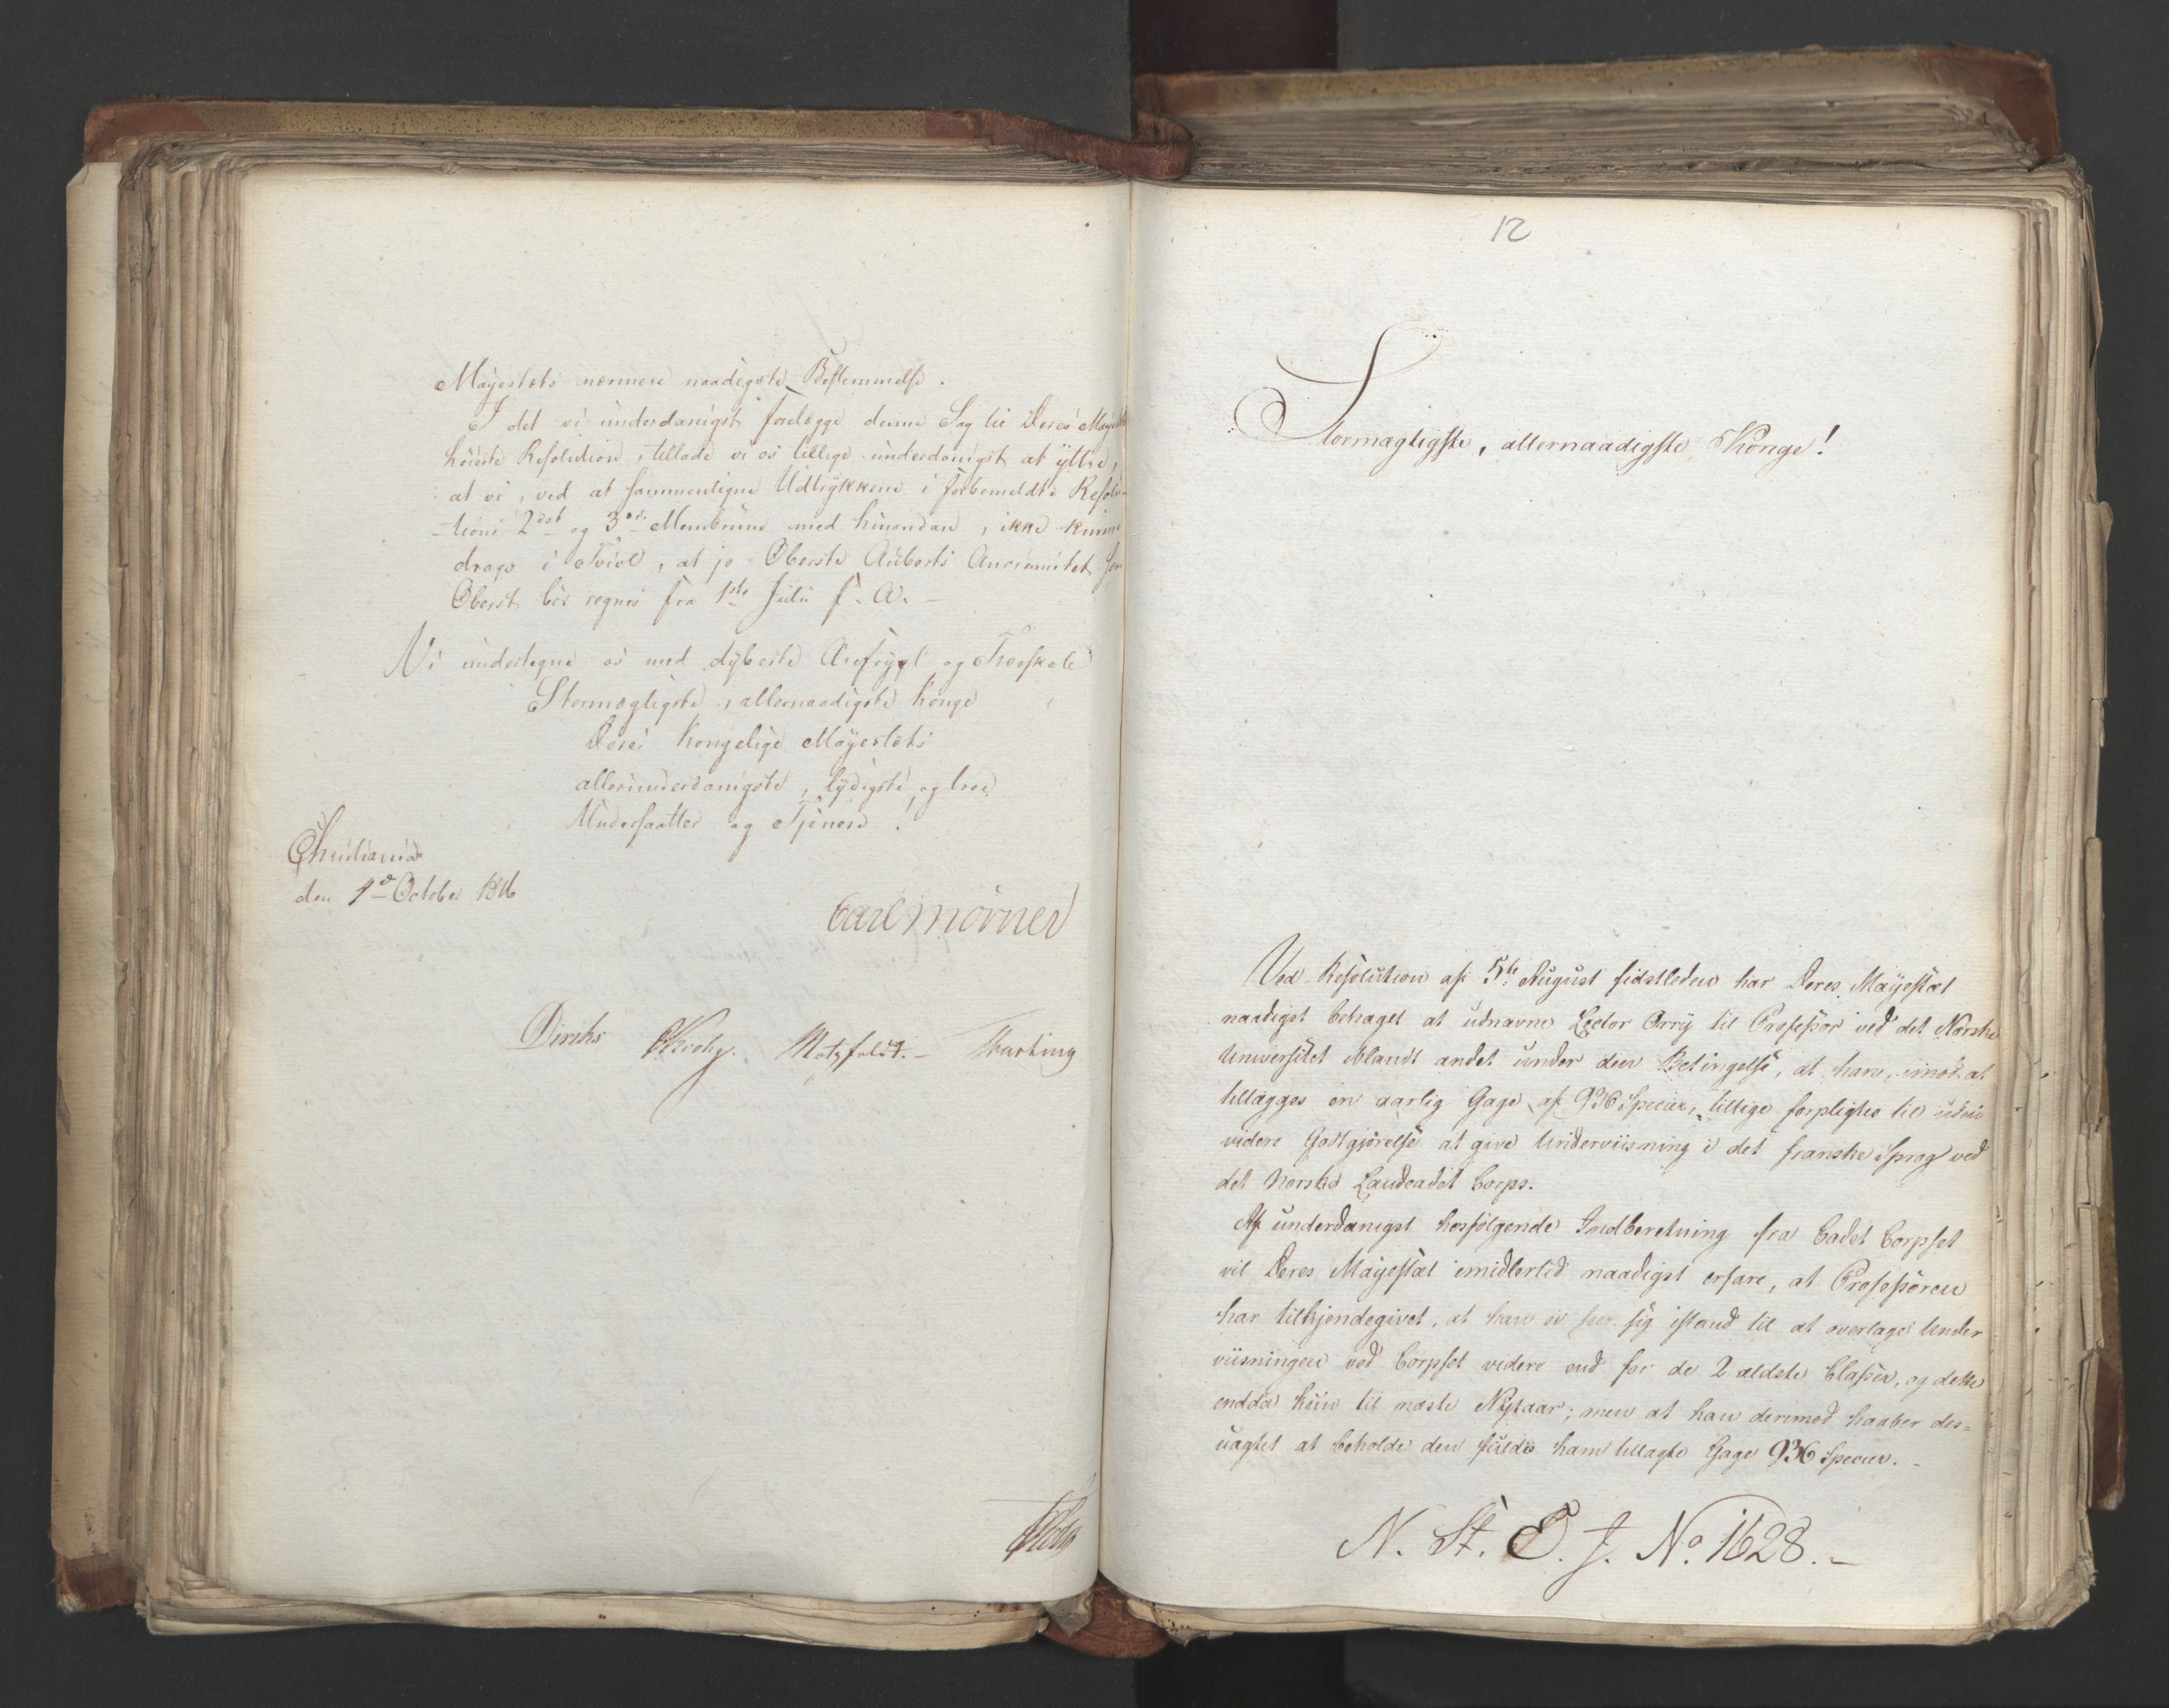 Mayestæts nærmere naadigste Bestemmelse.
I det vi underdanigst forelægge denne Sag til Deres Mayestæts
høieste Resolution, tillade vi os tillige underdanigst at yttre,
at vi, ved at sammenligne Udtrykkene i forbemeldte Resolu-
-tions 2det og 3die Membrum med hinanden, ikke kunne
drage i Tvivl, at jo Oberste Auberts Anciennitet som
Oberst bør regnes fra 1ste Julii f. A. -
Vi undertegne os med dybeste Ærefrygt og Troeskab
Stormægtigste, allernaadigste Konge
Deres Kongelige Mayestæts
allerunderdanigste, lydigste, og troe
Undersaatter og Tjenere.
Christiania
den 1ste October 1816
Carl Mörner
Diriks Krohg. Motzfeldt. - Thaulow
12
Stormægtigste, allernaadigste Konge!
Ved Resolution af 5te August sidstleden har Deres Mayestæt
naadigst behaget at udnævne Lector Orry til Professor ved det Norske
Universitet iblandt andet under den Betingelse, at han, imod at
tillægges en aarlig Gage af 936 Specier, tillige forpligtes til uden
videre Godtgjørelse at give Underviisning i det franske Sprog ved
det Norske Landcadet Corps.
Af underdanigst hosfølgende Indberetning fra Cadet Corpset
vil Deres Mayestæt imidlertid naadigst erfare, at Professoren
har tilkjendegivet, at han ei seer sig istand til at overtage Under
viisningen ved Corpset videre end for de 2 ældste Classer, og dette
endda kun til næste Nytaar; men at han derimod haaber des=
uagtet at beholde den fulde ham tillagte Gage 936 Specier. -
N. St. E. J. No. 1628. -